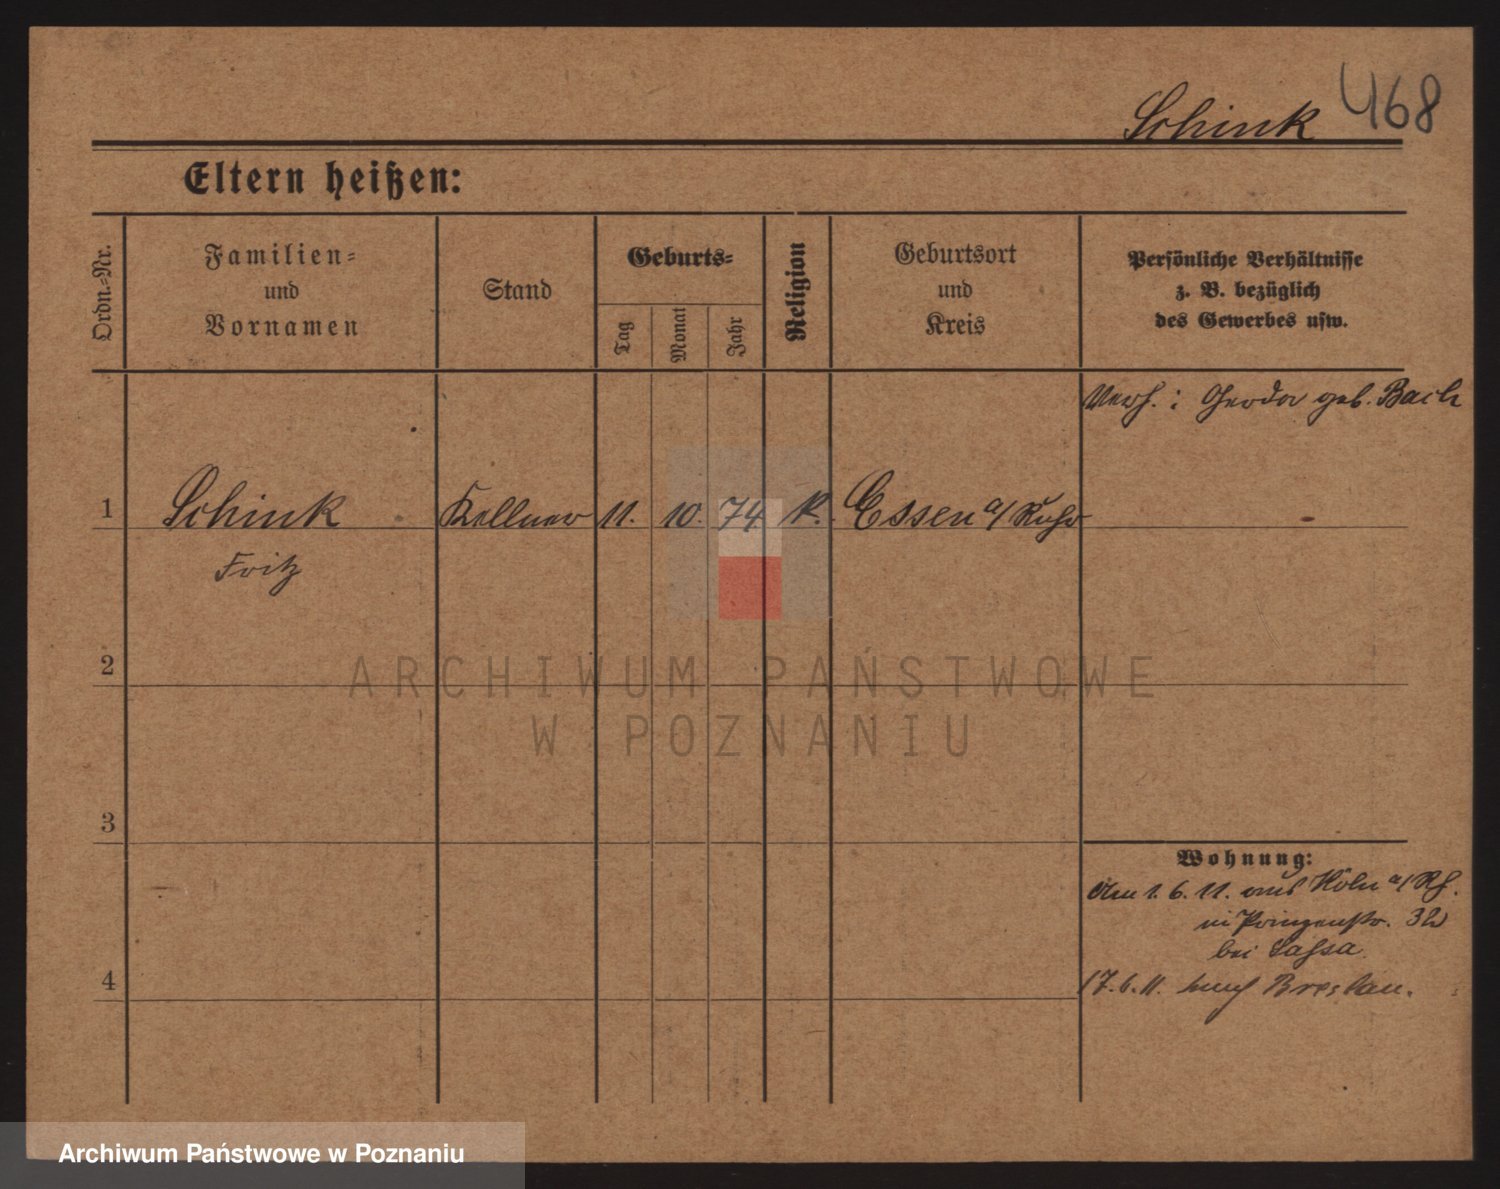 Schink 468
Eltern heißen:
Ordn.-Nr.
Familien-
und
Vornamen
Stand
Geburts-
Tag
Monat
Jahr
Religion
Geburtsort
und
Kreis
Persönliche Verhältnisse
z. B. bezüglich
des Gewerbes usw.
Verh. : Gerda geb. Bach
1 Schink Kellner 11. 10. 74 K. Essen a/ Ruhr
Fritz
2
ARCHIWUM PAŃSTWOWE
W POZNANIU
3
Wohnung:
Am 1. 6. 11. aus Köln a/ Rh.
in Prinzenstr. 32
bei
4
17. 6. 11. nach Breslau.
Archiwum Państwowe w Poznaniu